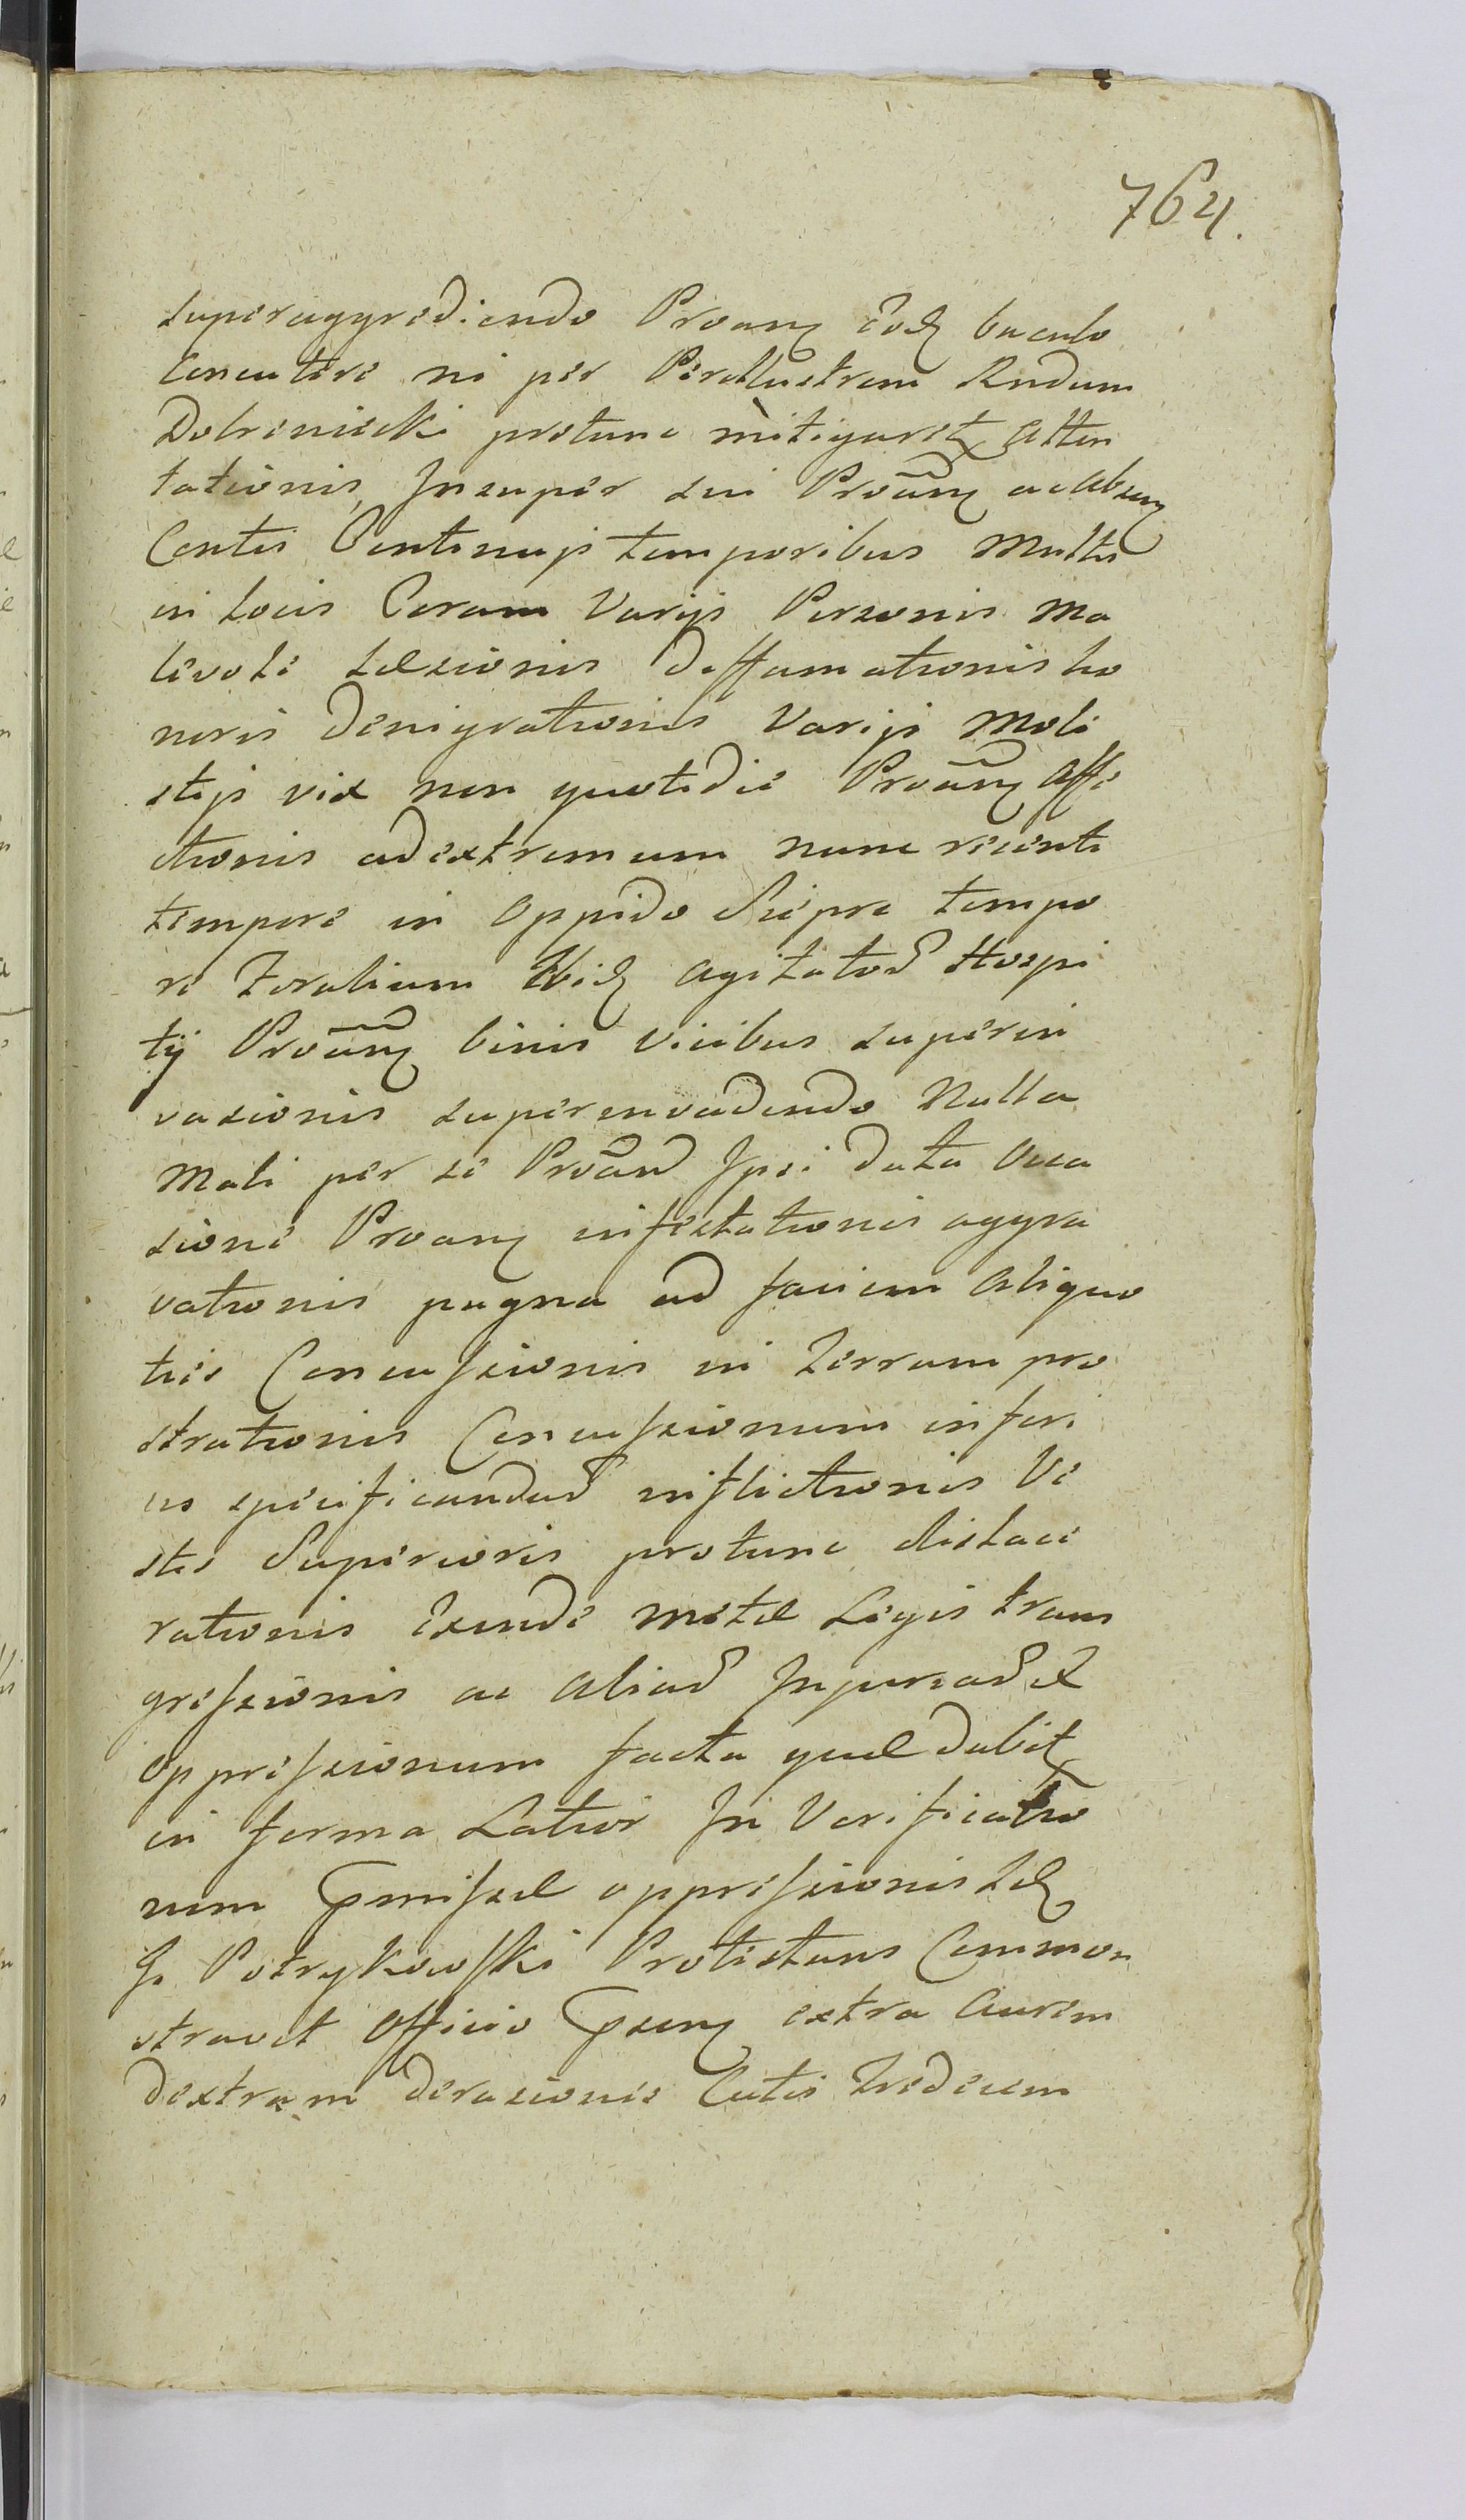 764.
superaggrediendo Proang Eodq baculo
Concutere ni per Perillustrem Rndum
Dobroniecki protunc mitigaretq Atten
tationis, Insuper sui Proãng ac Absenq
Contis Continuys temporibus Multis
in Locis Coram Varijs Personis Ma
levole Læsionis Deffamationis ho
noris Denigrationis Varijs Mole
stijs vix non quotidie Proãng Affe
ctionis ad extremum nunc recenti
tempore in Oppido Sierpc tempo
re Foralium Ibidq Agitatod Hospi
tij Proãng binis vicibus superin
vasionis superinvadendo Nulla
Mali per se Proand Ipsi data Occa
sione Proang infestationis aggra
vationis pugna ad faciem Aliquo
ties Concussionis in Terram pro
strationis Concussionum inferi
us specificandad inflictionis Ve
stis Superioris protunc dislace
rationis Exinde metæ Legis trans
gressionis ac Aliad Injuriad et
Oppressionum facta quæ dabitq
in forma Latior In Verificatio
nem Pmissæ oppressionis Idq
G. Potrykowski Protestans Commen
stravit Officio Psenq extra Aurem
dextram derasionis Cutis Tredecem